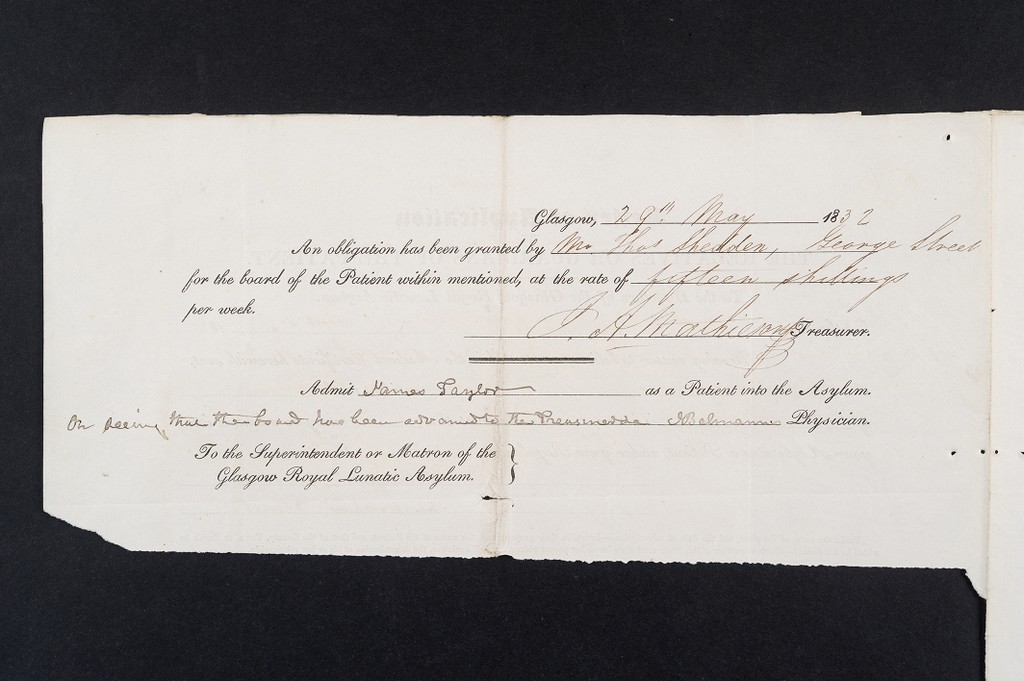 Glasgow, 29th May 1832
An obligation has been granted by Mr Thos Shedden, George Street
for the board of the Patient within mentioned, at the rate of fifteen shillings
per week.
J. A. Mathieson Treasurer.
Admit James Taylor as a Patient into the Asylum.
On seeing that the board has been advanced to the Physician.
To the Superintendent or Matron of the
Glasgow Royal Lunatic Asylum.